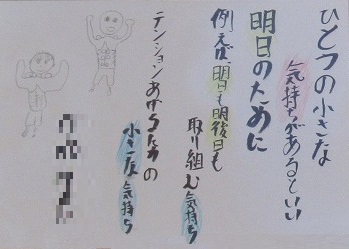 ひとつの小さな
気持ちがあるといい
明日のために
例えば、明日も明後日も
取り組む気持ち
テンションあげるための
小さな気持ち